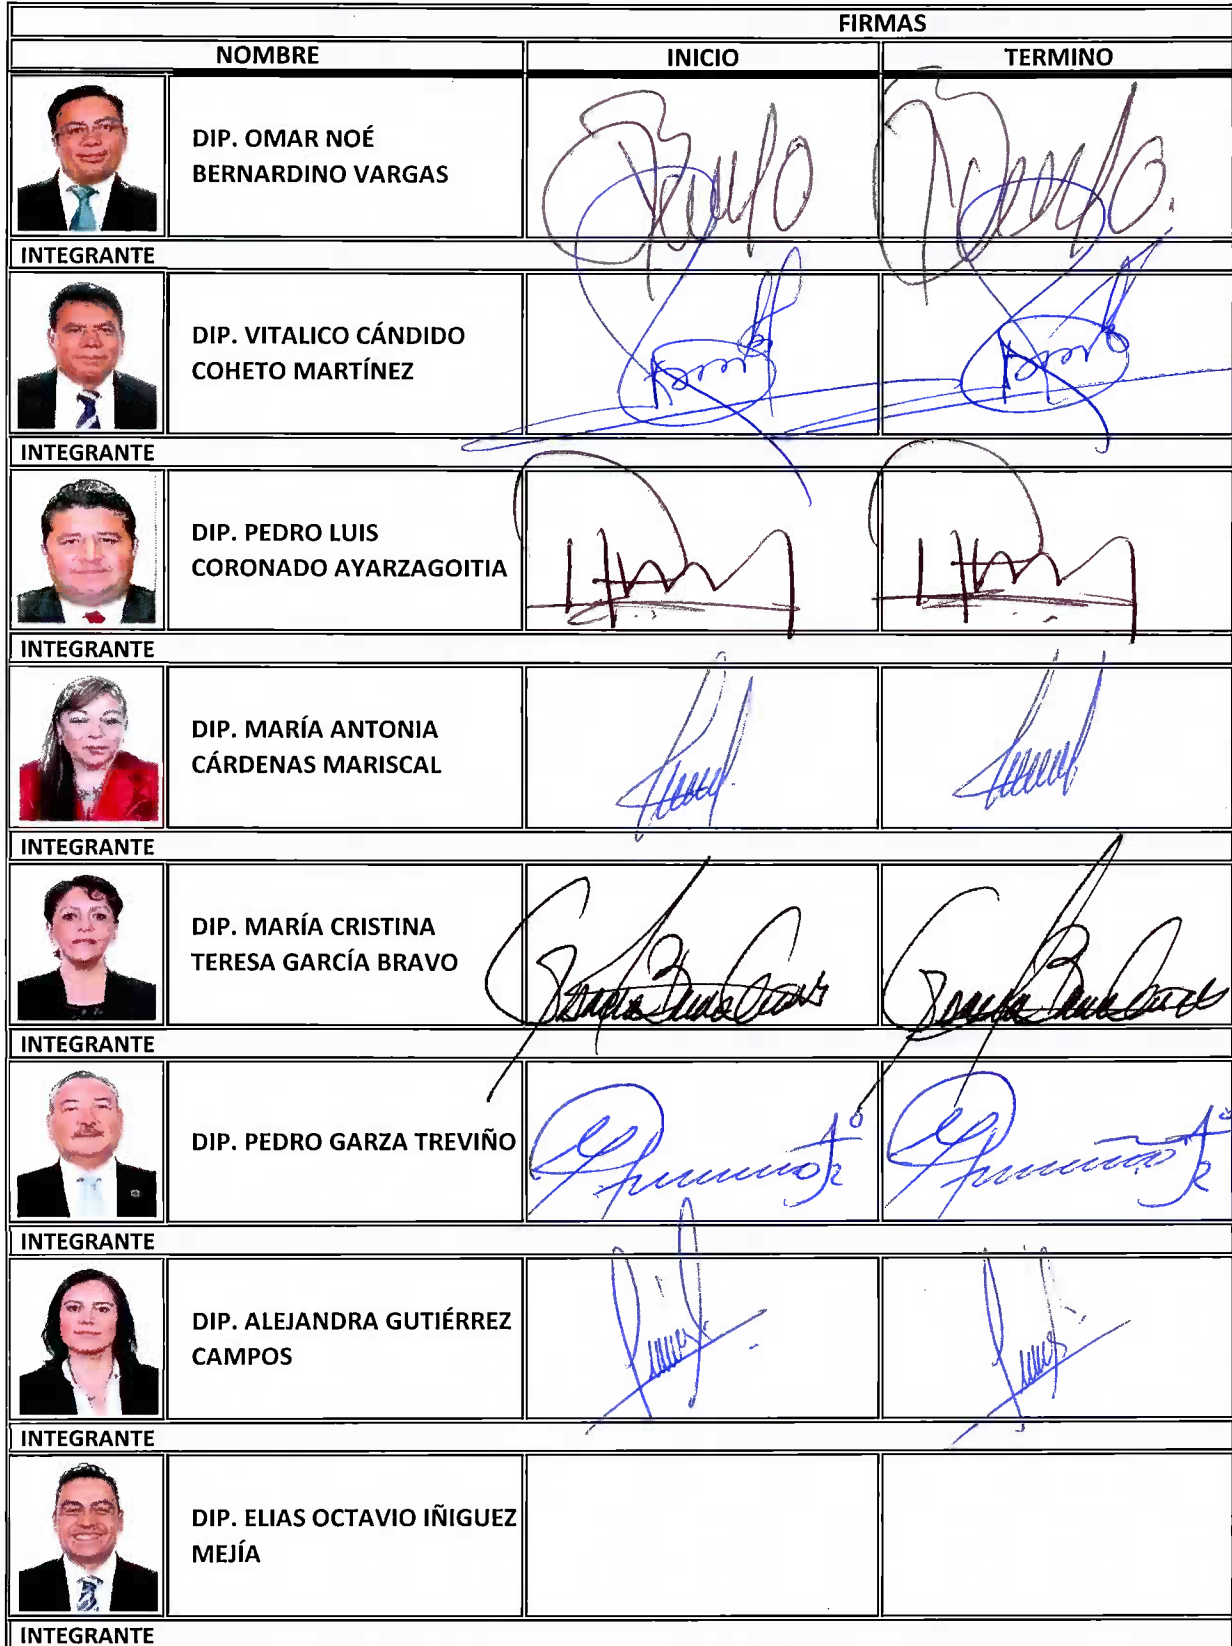 FIRMAS
NOMBRE INICIO TERMINO
DIP. OMAR NOÉ
BERNARDINO VARGAS
INTEGRANTE
DIP. VITALICO CÁNDIDO
COHETO MARTÍNEZ
INTEGRANTE
DIP. PEDRO LUIS
CORONADO AYARZAGOITIA
INTEGRANTE
DIP. MARÍA ANTONIA
CÁRDENAS MARISCAL
INTEGRANTE
DIP. MARÍA CRISTINA
TERESA GARCÍA BRAVO
INTEGRANTE
DIP. PEDRO GARZA TREVIÑO
INTEGRANTE
DIP. ALEJANDRA GUTIÉRREZ
CAMPOS
INTEGRANTE
DIP. ELIAS OCTAVIO IÑIGUEZ
MEJÍA
INTEGRANTE